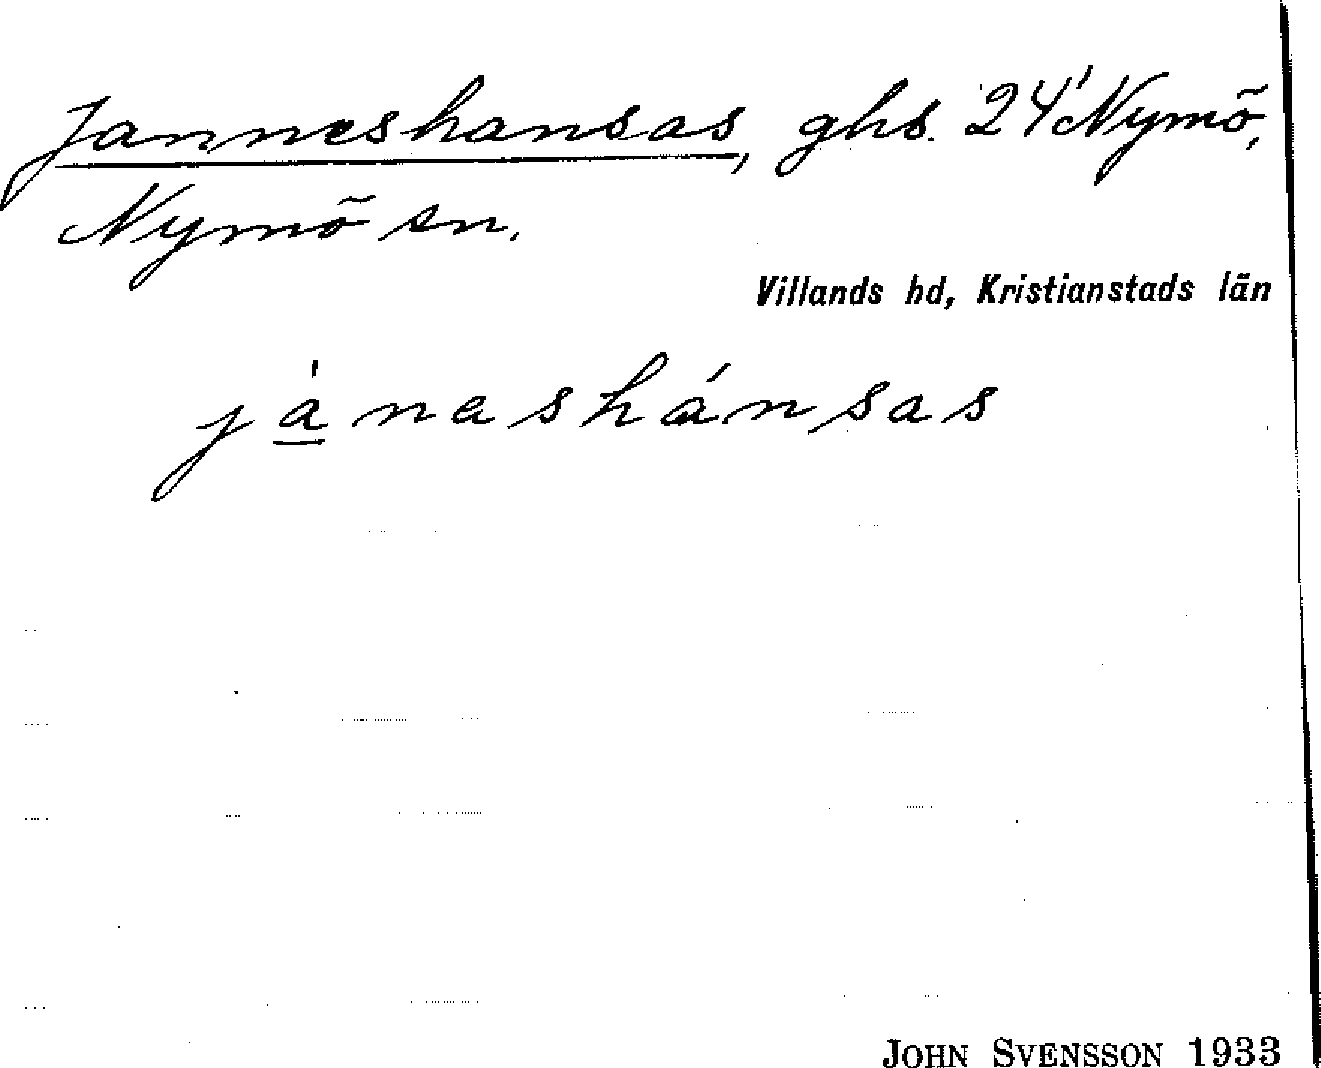 Janneshansas, ghs. 24' Nymö,
Nymö sn.
Villands hd, Kristianstads län
jánashánsas
JOHN SVENSSON 1933